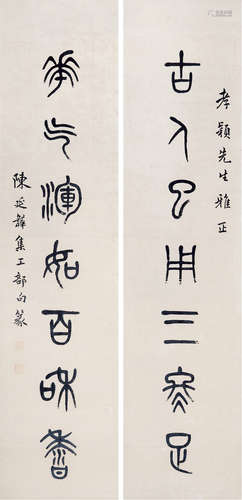 孝穎先生雅正
古人已用三冬足
華气渾如百和香
陳延韡集工部句篆